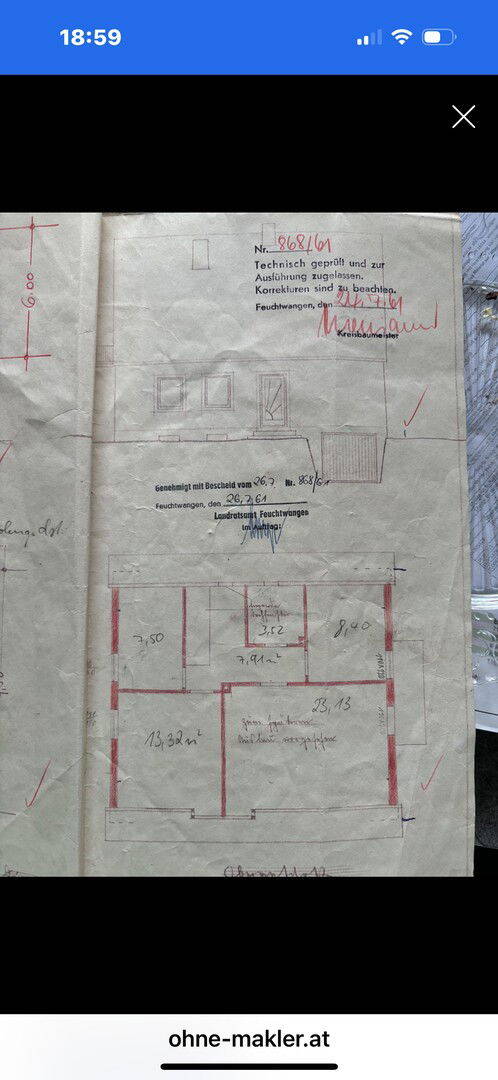 18:59
Nr. 868/61
Technisch geprüft und zur
Ausführung zugelassen.
Korrekturen sind zu beachten.
Feuchtwangen, den 24.7.61
Kreisbaumeister
6.00
Genehmigt mit Bescheid vom 26.7 Nr. 868/61
Feuchtwangen, den 26.7.61
Landratsamt Feuchtwangen
Im Auftrag:
7,50
3,52
8,40
7,91 m²
23,13
13,32 m²
zum späteren
ohne-makler.at